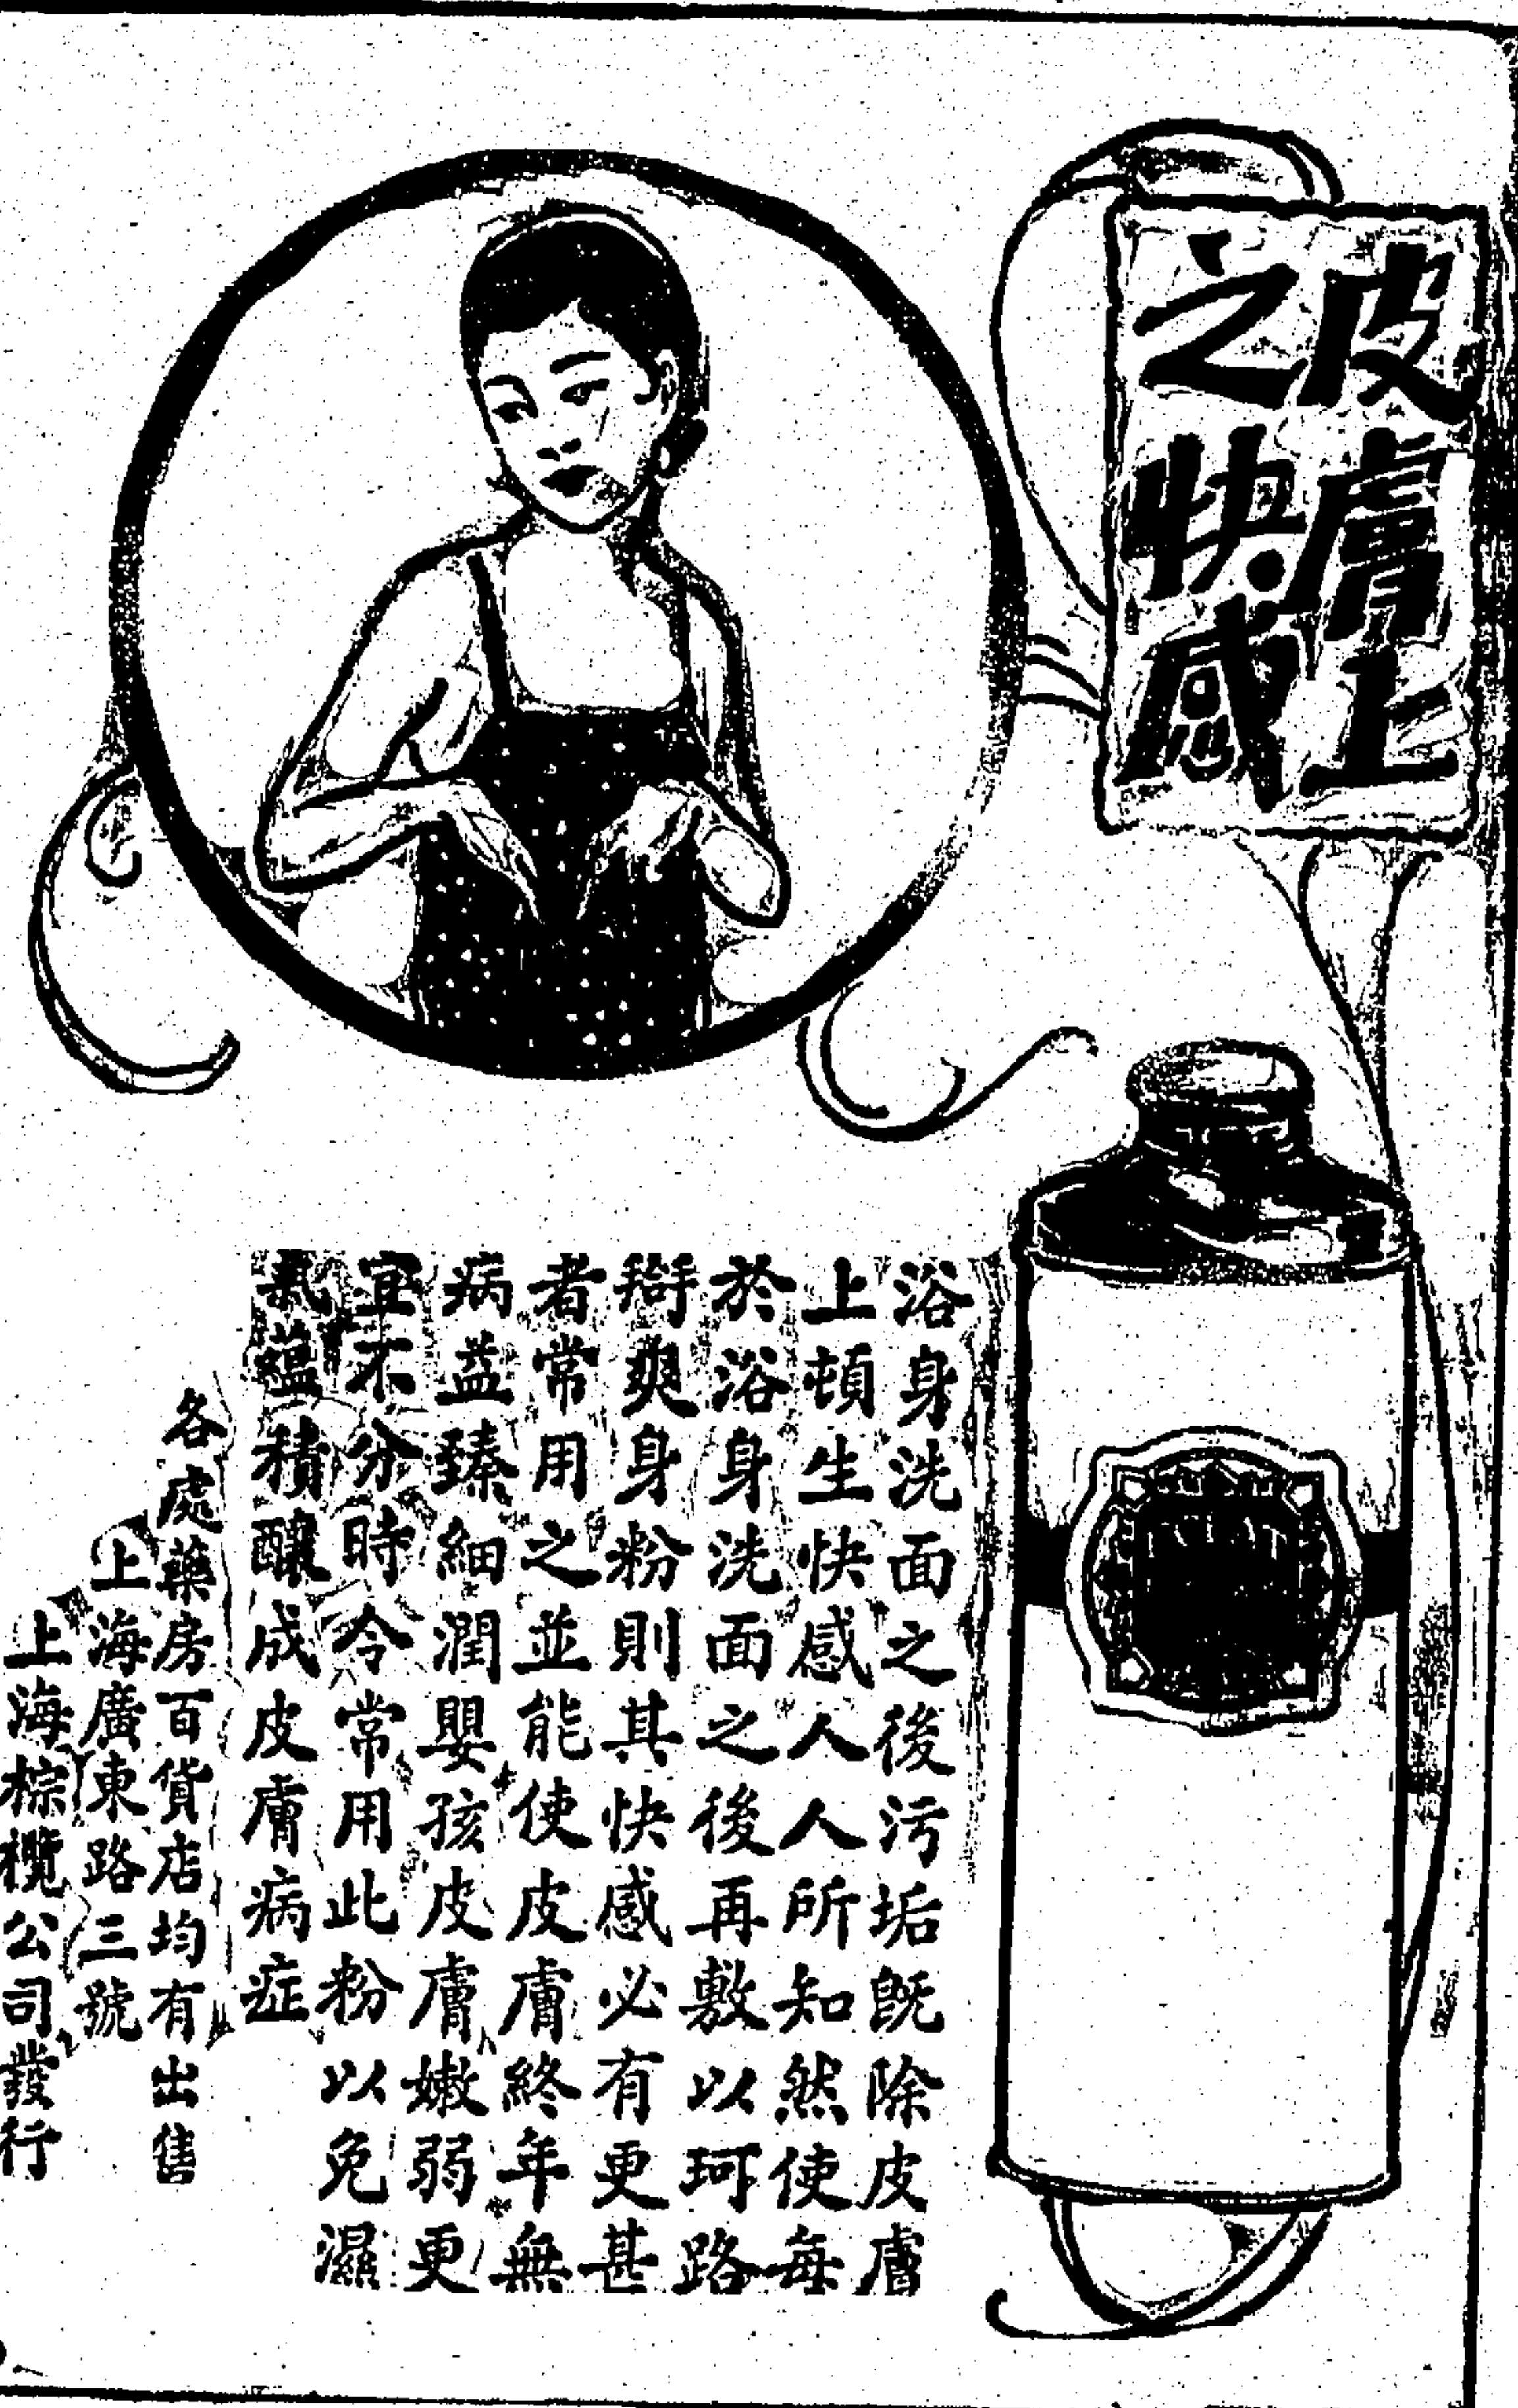 皮膚上
之快感
浴身洗面之後污垢既除皮膚
上頓生快感人人所知然使每
於浴身洗面之後再敷以珂路
搿爽身粉則其快感必有更甚
者常用之並能使皮膚終年無
病益臻細潤嬰孩皮膚嫩弱更
宜不分時令常用此粉以免濕
氣蘊積釀成皮膚病症
各處藥房百貨店均有出售
上海廣東路三號
上海棕欖公司發行